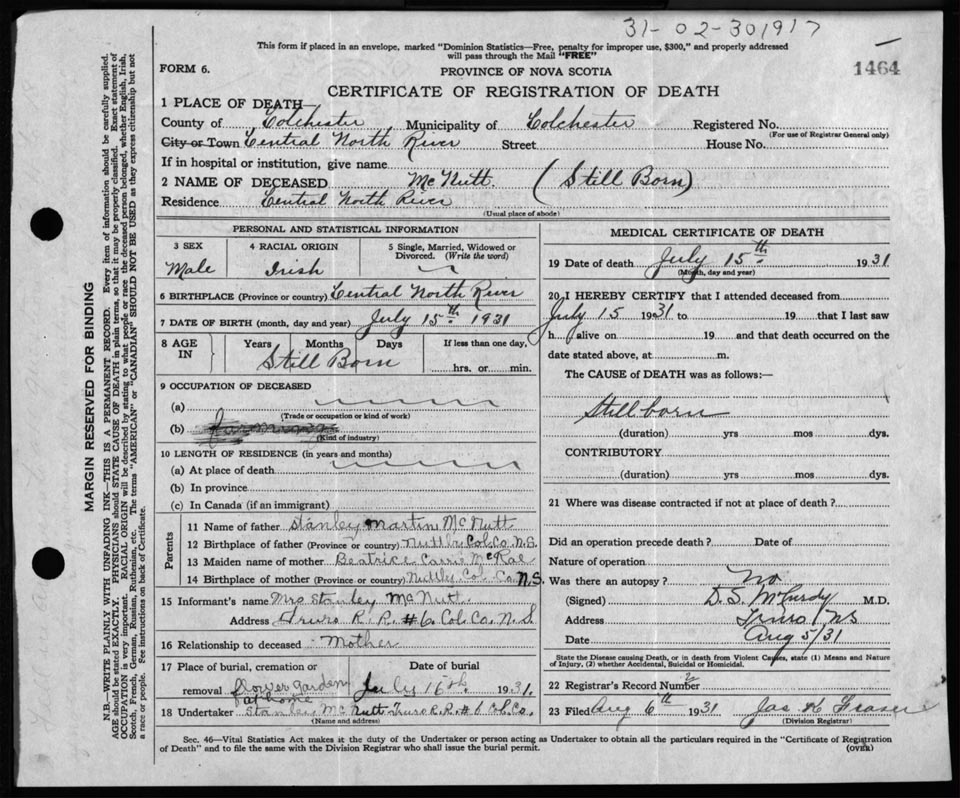 31-02-301917
This form if placed in an envelope, marked "Dominion Statistics—Free, penalty for improper use, $300," and properly addressed
will pass through the Mail "FREE"
FORM 6.
PROVINCE OF NOVA SCOTIA
1464
CERTIFICATE OF REGISTRATION OF DEATH
1 PLACE OF DEATH—
County of Colchester Municipality of Colchester Registered No.
(For use of Registrar General only)
City or Town Central North River Street House No.
If in hospital or institution, give name
2 NAME OF DECEASED McNutt. (Still Born)
Residence Central North River
(Usual place of abode)
PERSONAL AND STATISTICAL INFORMATION
3 SEX 4 RACIAL ORIGIN 5 Single, Married, Widowed or
Divorced. (Write the word)
Male Irish
6 BIRTHPLACE (Province or country) Central North River
7 DATE OF BIRTH (month, day and year) July 15th 1931
8 AGE IN Years Months Days If less than one day,
Still Born hrs. or min.
9 OCCUPATION OF DECEASED
(a)
(Trade or occupation or kind of work)
(b)
(Kind of industry)
10 LENGTH OF RESIDENCE (in years and months)
(a) At place of death
(b) In province
(c) In Canada (if an immigrant)
Parents
11 Name of father Stanley Martin McNutt
12 Birthplace of father (Province or country) Nuttby Col. Co. N.S.
13 Maiden name of mother Beatrice Carrie McRae
14 Birthplace of mother (Province or country) Nuttby Col. Co. N.S.
15 Informant's name Mrs Stanley McNutt
Address Truro R. R. #6 Col. Co. N. S.
16 Relationship to deceased Mother
17 Place of burial, cremation or Date of burial
removal flower garden July 16th 1931.
at home
18 Undertaker Stanley McNutt Truro R.R. #6 Col. Co.
(Name and address)
MEDICAL CERTIFICATE OF DEATH
19 Date of death July 15th 1931
(Month, day and year)
20 I HEREBY CERTIFY that I attended deceased from
July 15 1931 to 19 that I last saw
h alive on 19 and that death occurred on the
date stated above, at m.
The CAUSE of DEATH was as follows:—
Stillborn
(duration) yrs mos dys.
CONTRIBUTORY
(duration) yrs mos dys.
21 Where was disease contracted if not at place of death?
Did an operation precede death? Date of
Nature of operation
Was there an autopsy? No
(Signed) D. S. McCurdy M.D.
Address Truro, N.S
Date Aug 5/31
State the Disease causing Death, or in death from Violent Causes, state (1) Means and Nature
of Injury, (2) whether Accidental, Suicidal or Homicidal.
22 Registrar's Record Number 2
23 Filed Aug 6th 1931 Jas K Fraser
(Division Registrar)
Sec. 46—Vital Statistics Act makes it the duty of the Undertaker or person acting as Undertaker to obtain all the particulars required in the "Certificate of Registration
of Death" and to file the same with the Division Registrar who shall issue the burial permit.
(OVER)
MARGIN RESERVED FOR BINDING
N.B.—WRITE PLAINLY WITH UNFADING INK—THIS IS A PERMANENT RECORD. Every item of information should be carefully supplied.
AGE should be stated EXACTLY. PHYSICIANS should STATE CAUSE OF DEATH in plain terms, so that it may be properly classified. Exact statement of
OCCUPATION is very important. RACIAL ORIGIN will be described by stating to what people or race the deceased person belonged, whether English, Irish,
Scotch, French, German, Russian, Ruthenian, etc. The terms "AMERICAN" or "CANADIAN" SHOULD NOT BE USED as they express citizenship but not
a race or people. Fee instructions on back of Certificate.